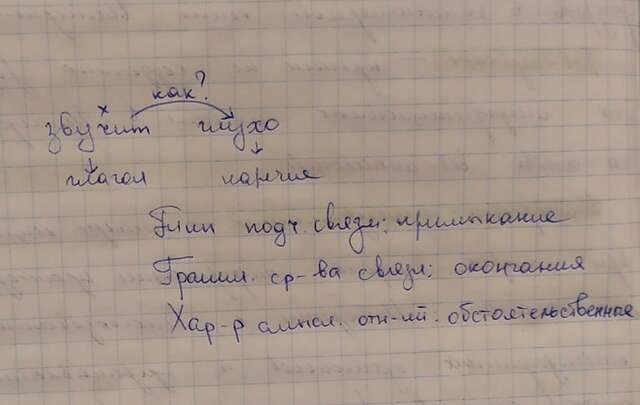 как?
х
звучит глухо
глагол наречие
Тип подч. связи: примыкание
Грамм. ср-ва связи: окончания
Хар-р смысл. отн-ий: обстоятельственные